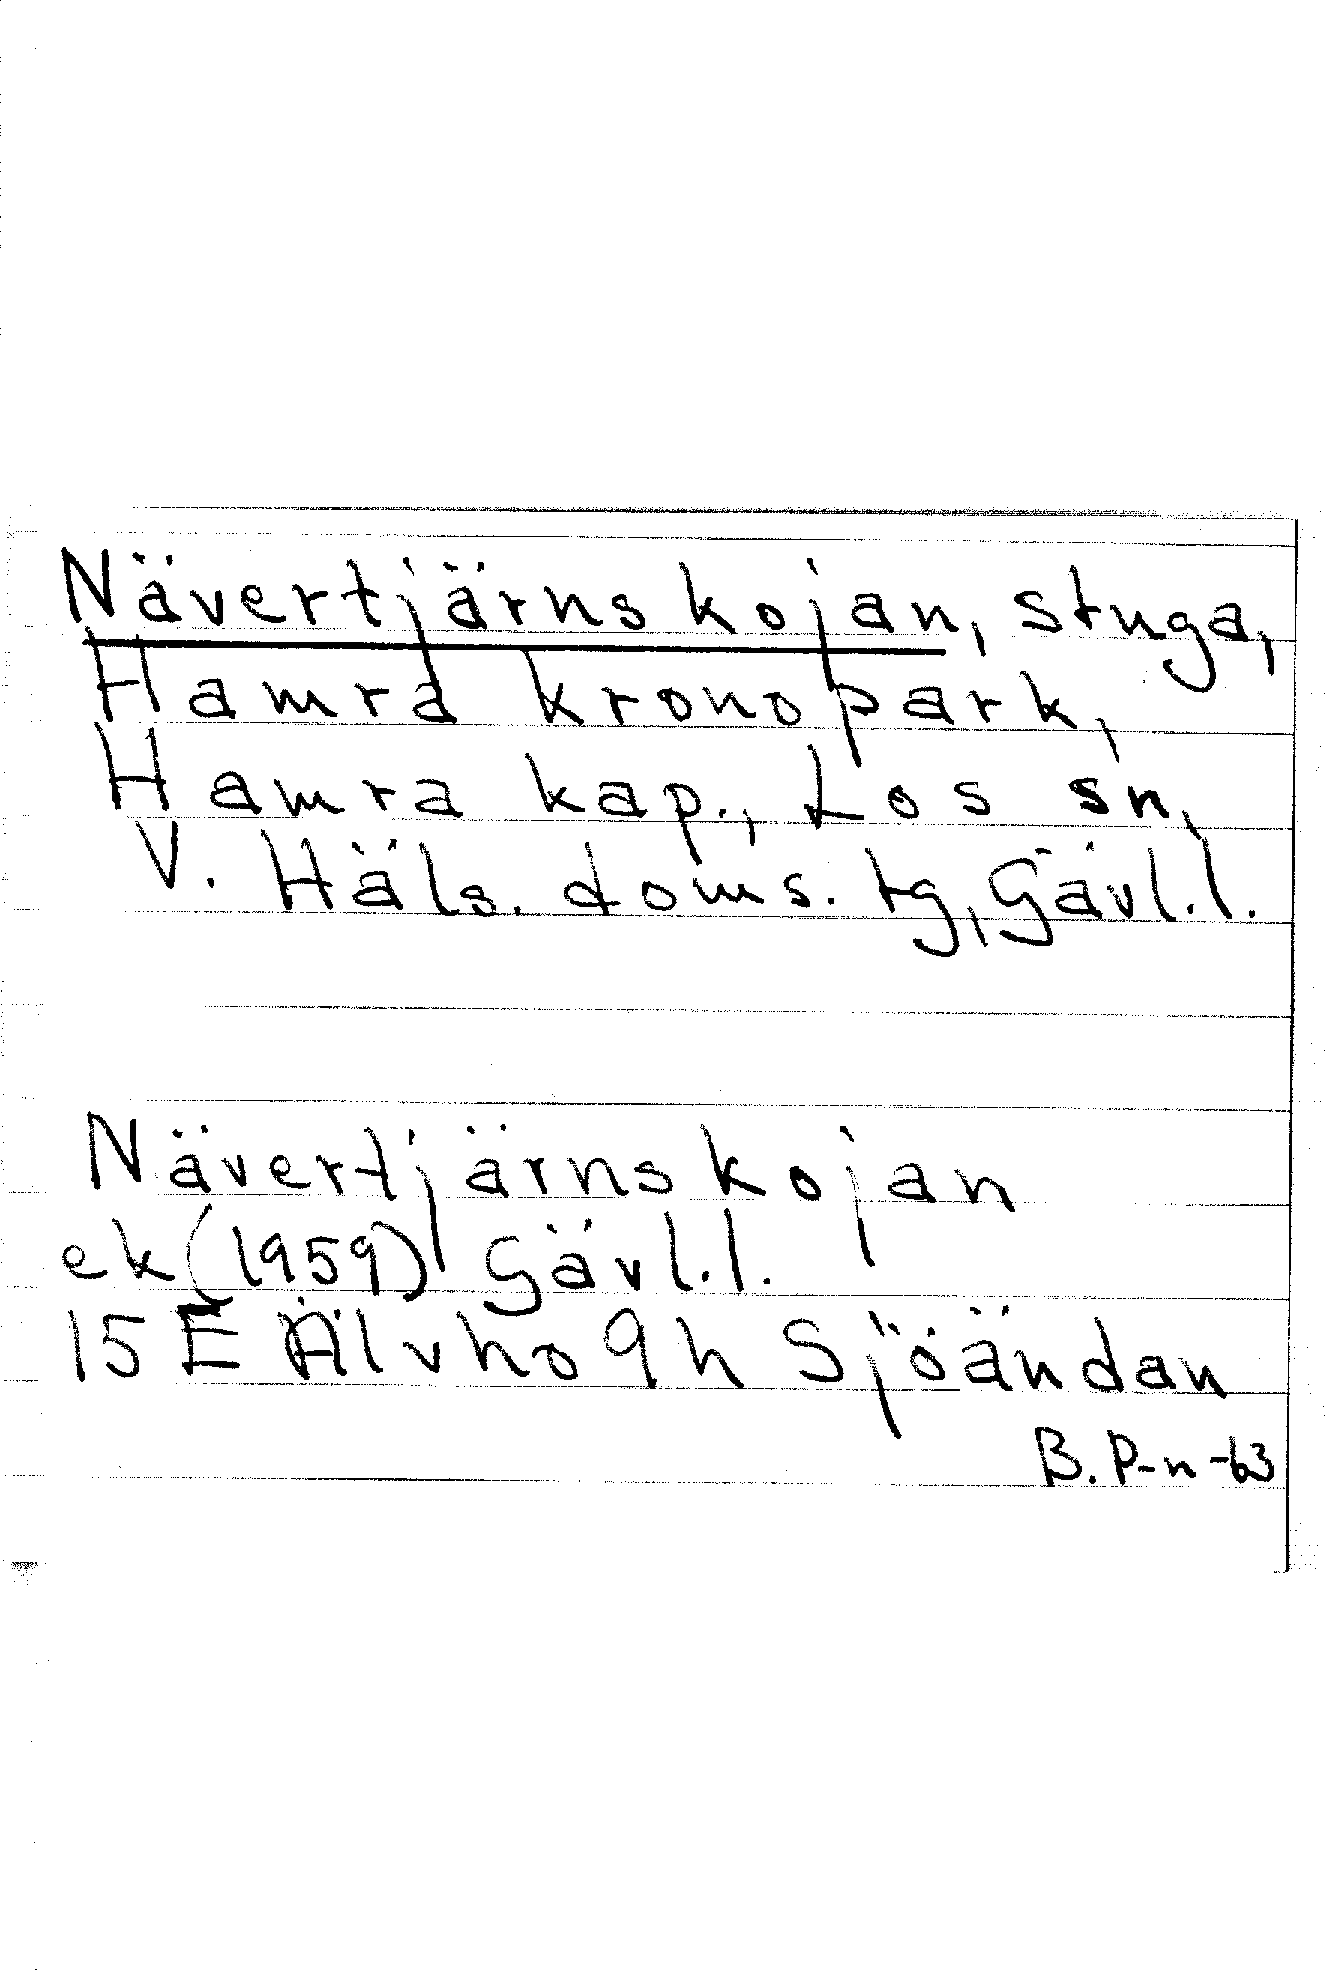 Nävertjärnskojan, stuga,
Hamra kronopark,
Hamra kap., Los sn,
V. Häls. doms. tg, Gävl. l.
Nävertjärnskojan
ek (1959) Gävl. l.
15 E Älvho 9h Sjöändan
B. P-n -63